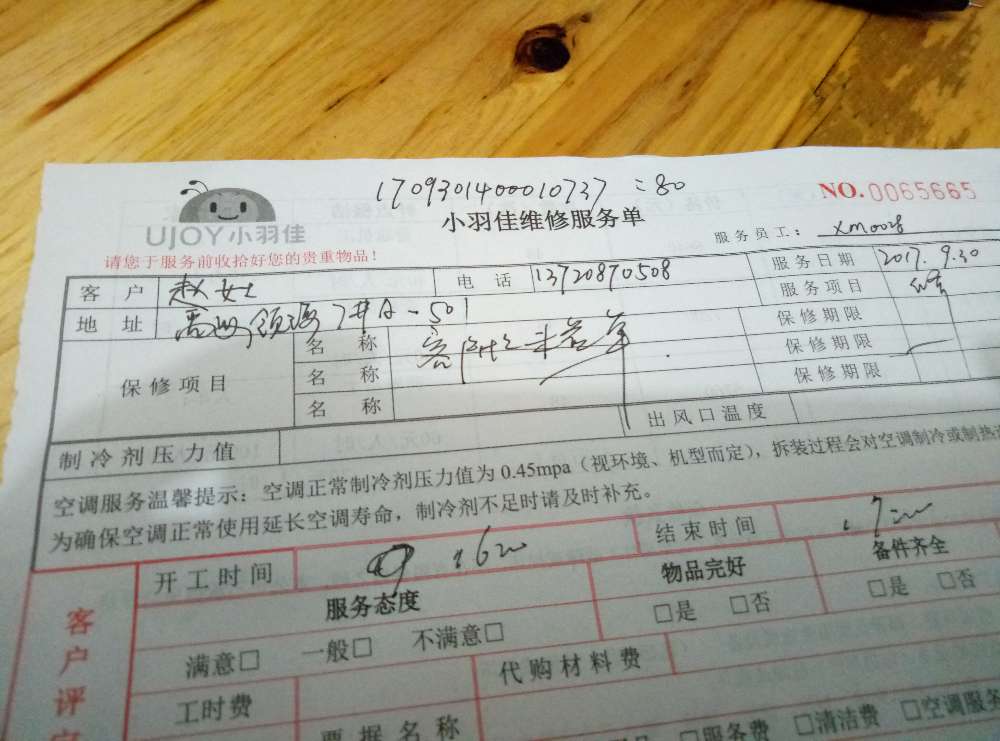 1709301400010737 =80
NO.0065665
UJOY小羽佳
小羽佳维修服务单
服务员工：xm0028
请您于服务前收拾好您的贵重物品！
客户 赵女士 电话 13720870508 服务日期 2017.9.30
地址 A-501 服务项目
保修项目 名称 保修期限
名称 保修期限
名称 保修期限
制冷剂压力值 出风口温度
空调服务温馨提示：空调正常制冷剂压力值为 0.45mpa（视环境、机型而定），拆装过程会对空调制冷或制热
为确保空调正常使用延长空调寿命，制冷剂不足时请及时补充。
客户评
开工时间 结束时间
服务态度 物品完好 备件齐全
满意□ 一般□ 不满意□ □是 □否 □是 □否
工时费 代购材料费
票据名称 □服务费 □清洁费 □空调服务